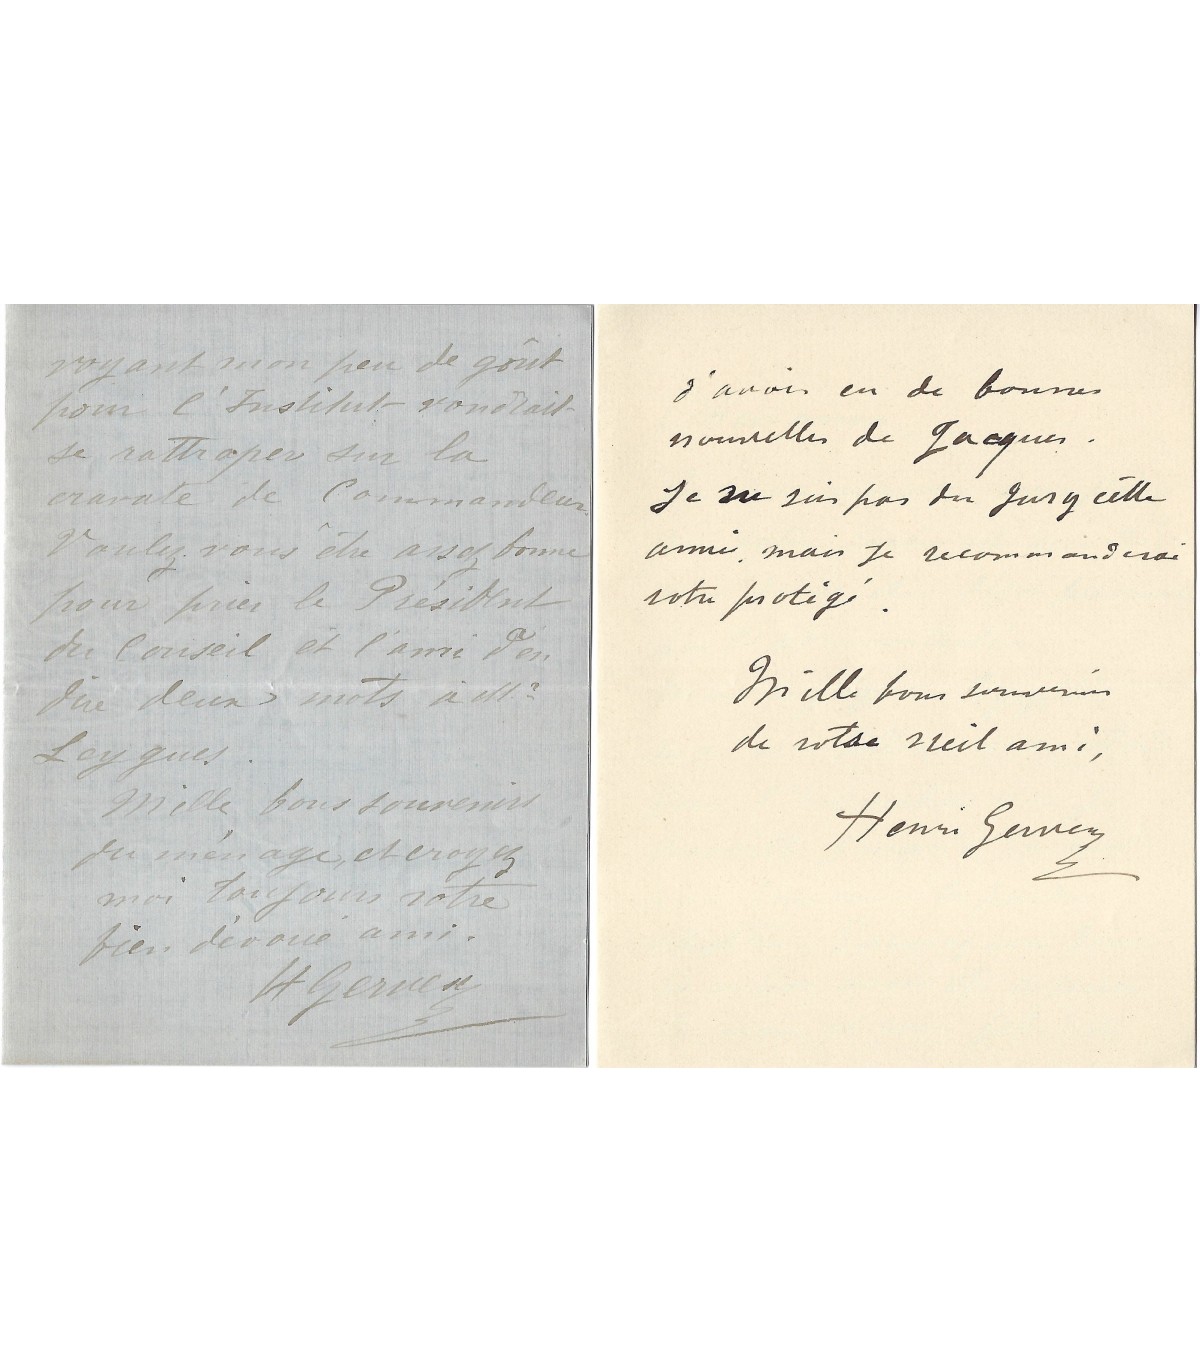 voyant mon peu de goût
pour l'Institut voudrait
se rattraper sur la
cravate de Commandeur.
Voulez-vous être assez bonne
pour prier le Président
du Conseil et l'ami d'en
dire deux mots à Mr
Leygues.
Mille bons souvenirs
du ménage, et croyez
moi toujours votre
bien dévoué ami.
H Gervex
d'avoir eu de bonnes
nouvelles de Jacques.
Je ne suis pas du Jury cette
année, mais je recommanderai
votre protégé.
Mille bons souvenirs
de votre vieil ami,
Henri Gervex